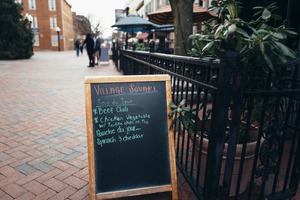 Village Square
Soup du Jour
*Beef Chili
*Chicken Vegetable
w/
Quiche du jour...
Spinach & cheddar